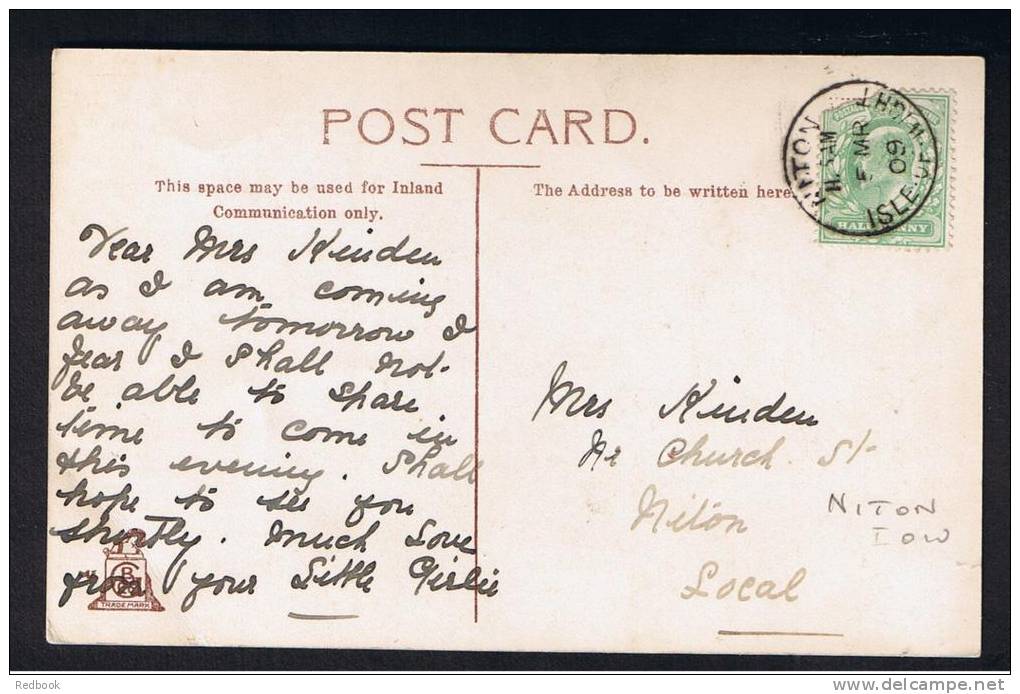 POST CARD.
This space may be used for Inland
Communication only.
The Address to be written here.
NITON
5 MR
09
ISLE OF WIGHT
HALFPENNY
Dear Mrs Kinden
as I am coming
away tomorrow I
fear I shall not
be able to spare
time to come in
this evening. Shall
hope to see you
shortly. much Love
from your Little Girlie
Mrs Kinden
Nr Church St
Niton
Local
NITON
IOW
TRADE MARK
Redbook
www.delcampe.net